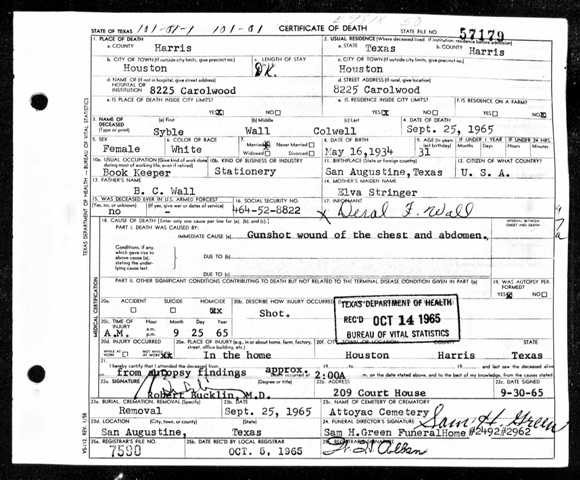 STATE OF TEXAS 101-01-1 101-01 CERTIFICATE OF DEATH STATE FILE NO. 57179
1. PLACE OF DEATH 2. USUAL RESIDENCE (Where deceased lived. If institution, residence before admission)
a. COUNTY Harris a. STATE Texas b. COUNTY Harris
b. CITY OR TOWN (If outside city limits, give precinct no.) c. LENGTH OF STAY c. CITY OR TOWN (If outside city limits, give precinct no.)
Houston DK. Houston
d. NAME OF (If not in hospital, give street address) d. STREET ADDRESS (If rural, give location)
HOSPITAL OR INSTITUTION 8225 Carolwood 8225 Carolwood
e. IS PLACE OF DEATH INSIDE CITY LIMITS? e. IS RESIDENCE INSIDE CITY LIMITS? f. IS RESIDENCE ON A FARM?
YES X NO YES X NO YES NO X
3. NAME OF DECEASED (Type or print) (a) First (b) Middle (c) Last 4. DATE OF DEATH
Syble Wall Colwell Sept. 25, 1965
5. SEX 6. COLOR OR RACE Married Never Married Widowed Divorced 8. DATE OF BIRTH 9. AGE IF UNDER 1 YEAR IF UNDER 24 HRS.
Female White May 16,1934 31
10a. USUAL OCCUPATION (Give kind of work done during most of working life, even if retired) 10b. KIND OF BUSINESS OR INDUSTRY 11. BIRTHPLACE (State or foreign country) 12. CITIZEN OF WHAT COUNTRY?
Book Keeper Stationery San Augustine,Texas U. S. A.
13. FATHER'S NAME 14. MOTHER'S MAIDEN NAME
B. C. Wall Elva Stringer
15. WAS DECEASED EVER IN U.S. ARMED FORCES? 16. SOCIAL SECURITY NO. 17. INFORMANT
(Yes, no, or unknown) (If yes, give war or dates of service)
no - 464-52-8822 X Deral F. Wall
18. CAUSE OF DEATH (Enter only one cause per line for (a), (b), and (c).) INTERVAL BETWEEN ONSET AND DEATH
PART I. DEATH WAS CAUSED BY:
IMMEDIATE CAUSE (a) Gunshot wound of the chest and abdomen.
Conditions, if any, which gave rise to above cause (a), stating the underlying cause last.
DUE TO (b)
DUE TO (c)
PART II. OTHER SIGNIFICANT CONDITIONS CONTRIBUTING TO DEATH BUT NOT RELATED TO THE TERMINAL DISEASE CONDITION GIVEN IN PART I (a) 19. WAS AUTOPSY PERFORMED?
YES X NO
20a. ACCIDENT SUICIDE HOMICIDE 20b. DESCRIBE HOW INJURY OCCURRED
Shot.
20c. TIME OF INJURY Hour Month Day Year
A.M. 9 25 65
TEXAS DEPARTMENT OF HEALTH
REC'D OCT 14 1965
BUREAU OF VITAL STATISTICS
20d. INJURY OCCURRED 20e. PLACE OF INJURY (e.g., in or about home, farm, factory, street, office building, etc.) COUNTY STATE
WHILE AT WORK NOT WHILE AT WORK xx In the home Houston Harris Texas
21. I hereby certify that I attended the deceased from
from autopsy findings approx. 2:00A
on the date stated above, and to the best of my knowledge, from the causes stated.
22a. SIGNATURE (Degree or title) 22b. ADDRESS 22c. DATE SIGNED
Robert Bucklin, M.D. 209 Court House 9-30-65
23a. BURIAL, CREMATION, REMOVAL (Specify) 23b. DATE 23c. NAME OF CEMETERY OR CREMATORY
Removal Sept. 25, 1965 Attoyac Cemetery
23d. LOCATION (City, town, or county) (State) 24. FUNERAL DIRECTOR'S SIGNATURE Sam H. Green
San Augustine, Texas Sam H.Green FuneralHome #2492#2962
25a. REGISTRAR'S FILE NO. 25b. DATE REC'D BY LOCAL REGISTRAR 25c. REGISTRAR'S SIGNATURE
7590 OCT. 5, 1965
TEXAS DEPARTMENT OF HEALTH — BUREAU OF VITAL STATISTICS
MEDICAL CERTIFICATION
VS-112 REV. 1/58